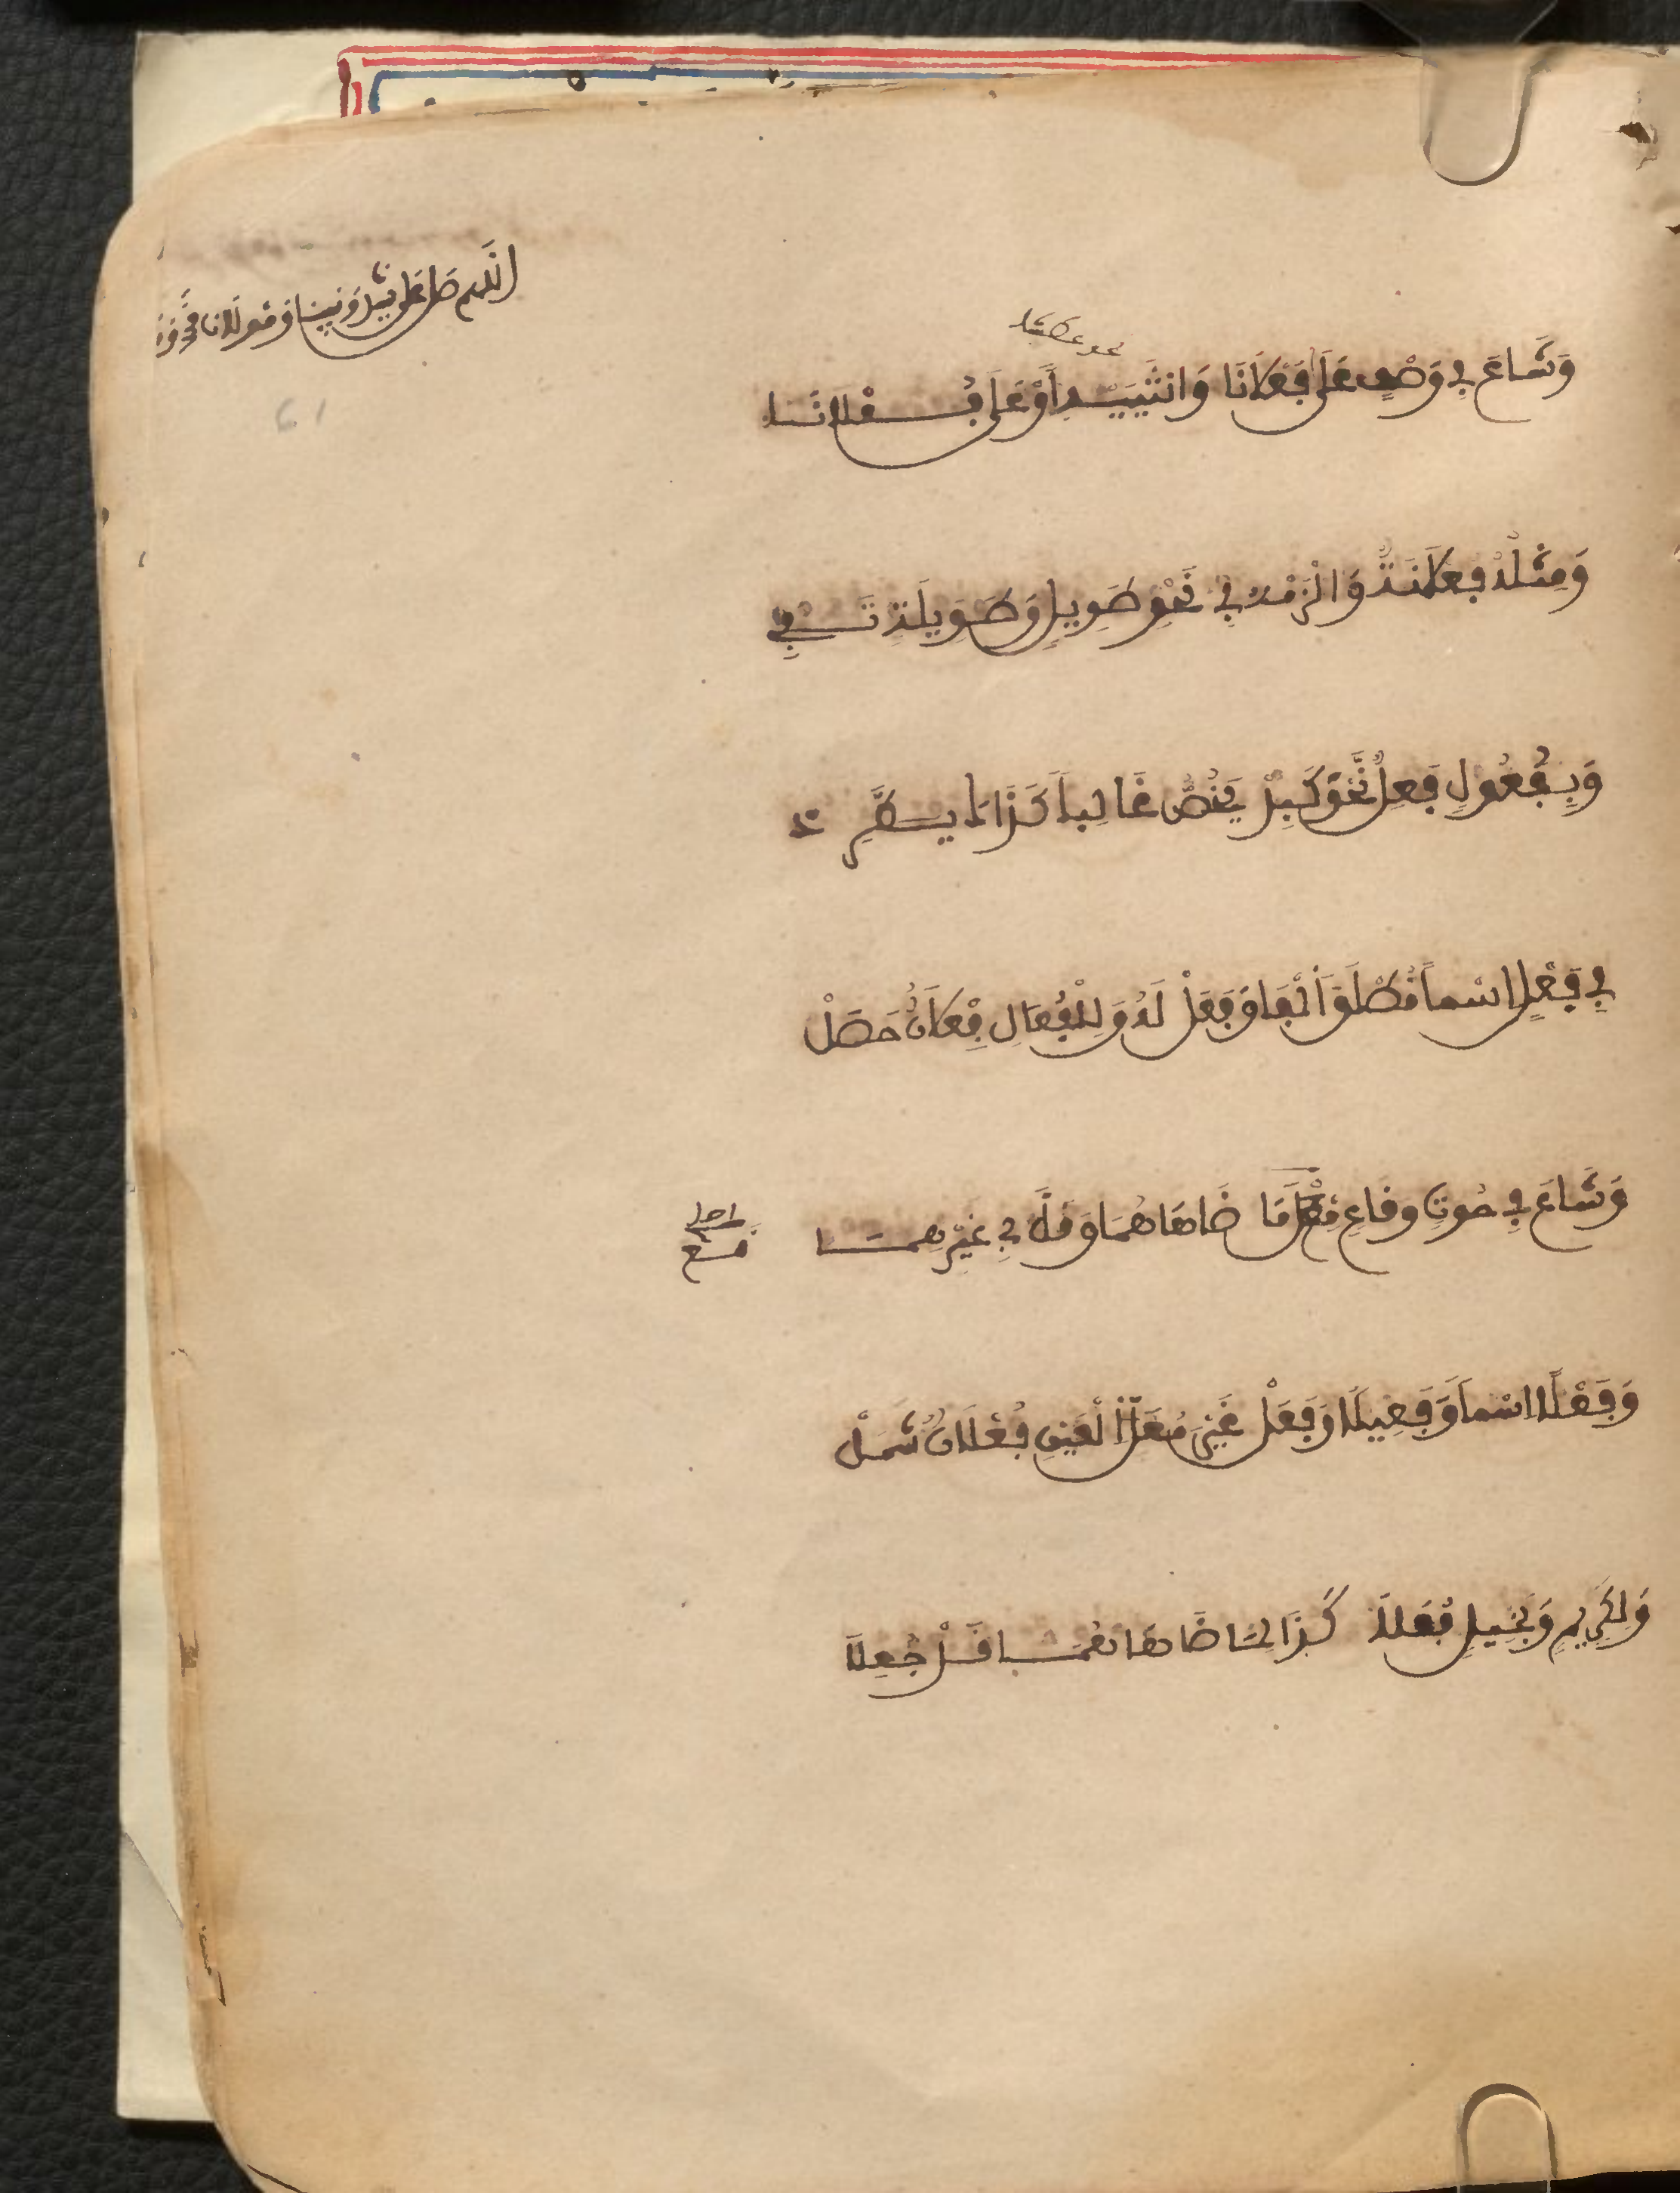 اللهم صل على سيدنا ونبينا ومولانا محمد
نحو عطشا
وَشَاعَ فِي وَصْفٍ عَلَى فَعْلَانَا وَانثَيَيْهِ أَوْ عَلَى فُعْلَانَا
وَمِثْلُهُ فُعْلَانَةٌ وَالْزَمْهُ فِي نَحْوِ طَوِيلٍ وَطَوِيلَةٍ تَفِي
وَبِفُعُولٍ فَعِلٌ نَّحْوَ كَبِدْ يُخَصُّ غَالِباً كَذَاكَ يَطَّرِدْ
فِي فَعْلٍ اسْماً مُطْلَقَ الْفَا وَفَعَلْ لَهُ وَلِلْفُعَالِ فِعْلَانٌ حَصَلْ
وَشَاعَ فِي حُوتٍ وقاعٍ مَعَ مَا ضَاهَاهُمَا وَقَلَّ فِي غَيْرِهِمَا
وَفَعْلاً اسْماً وَفَعِيلاً وَفَعَلْ غَيْرَ مُعَلِّ الْعَيْنِ فُعْلَانٌ شَمَلْ
وَلِكَرِيمٍ وَبَخِيلٍ فُعَلَا كَذَا لِمَا ضَاهَاهُمَا قَدْ جُعِلَا